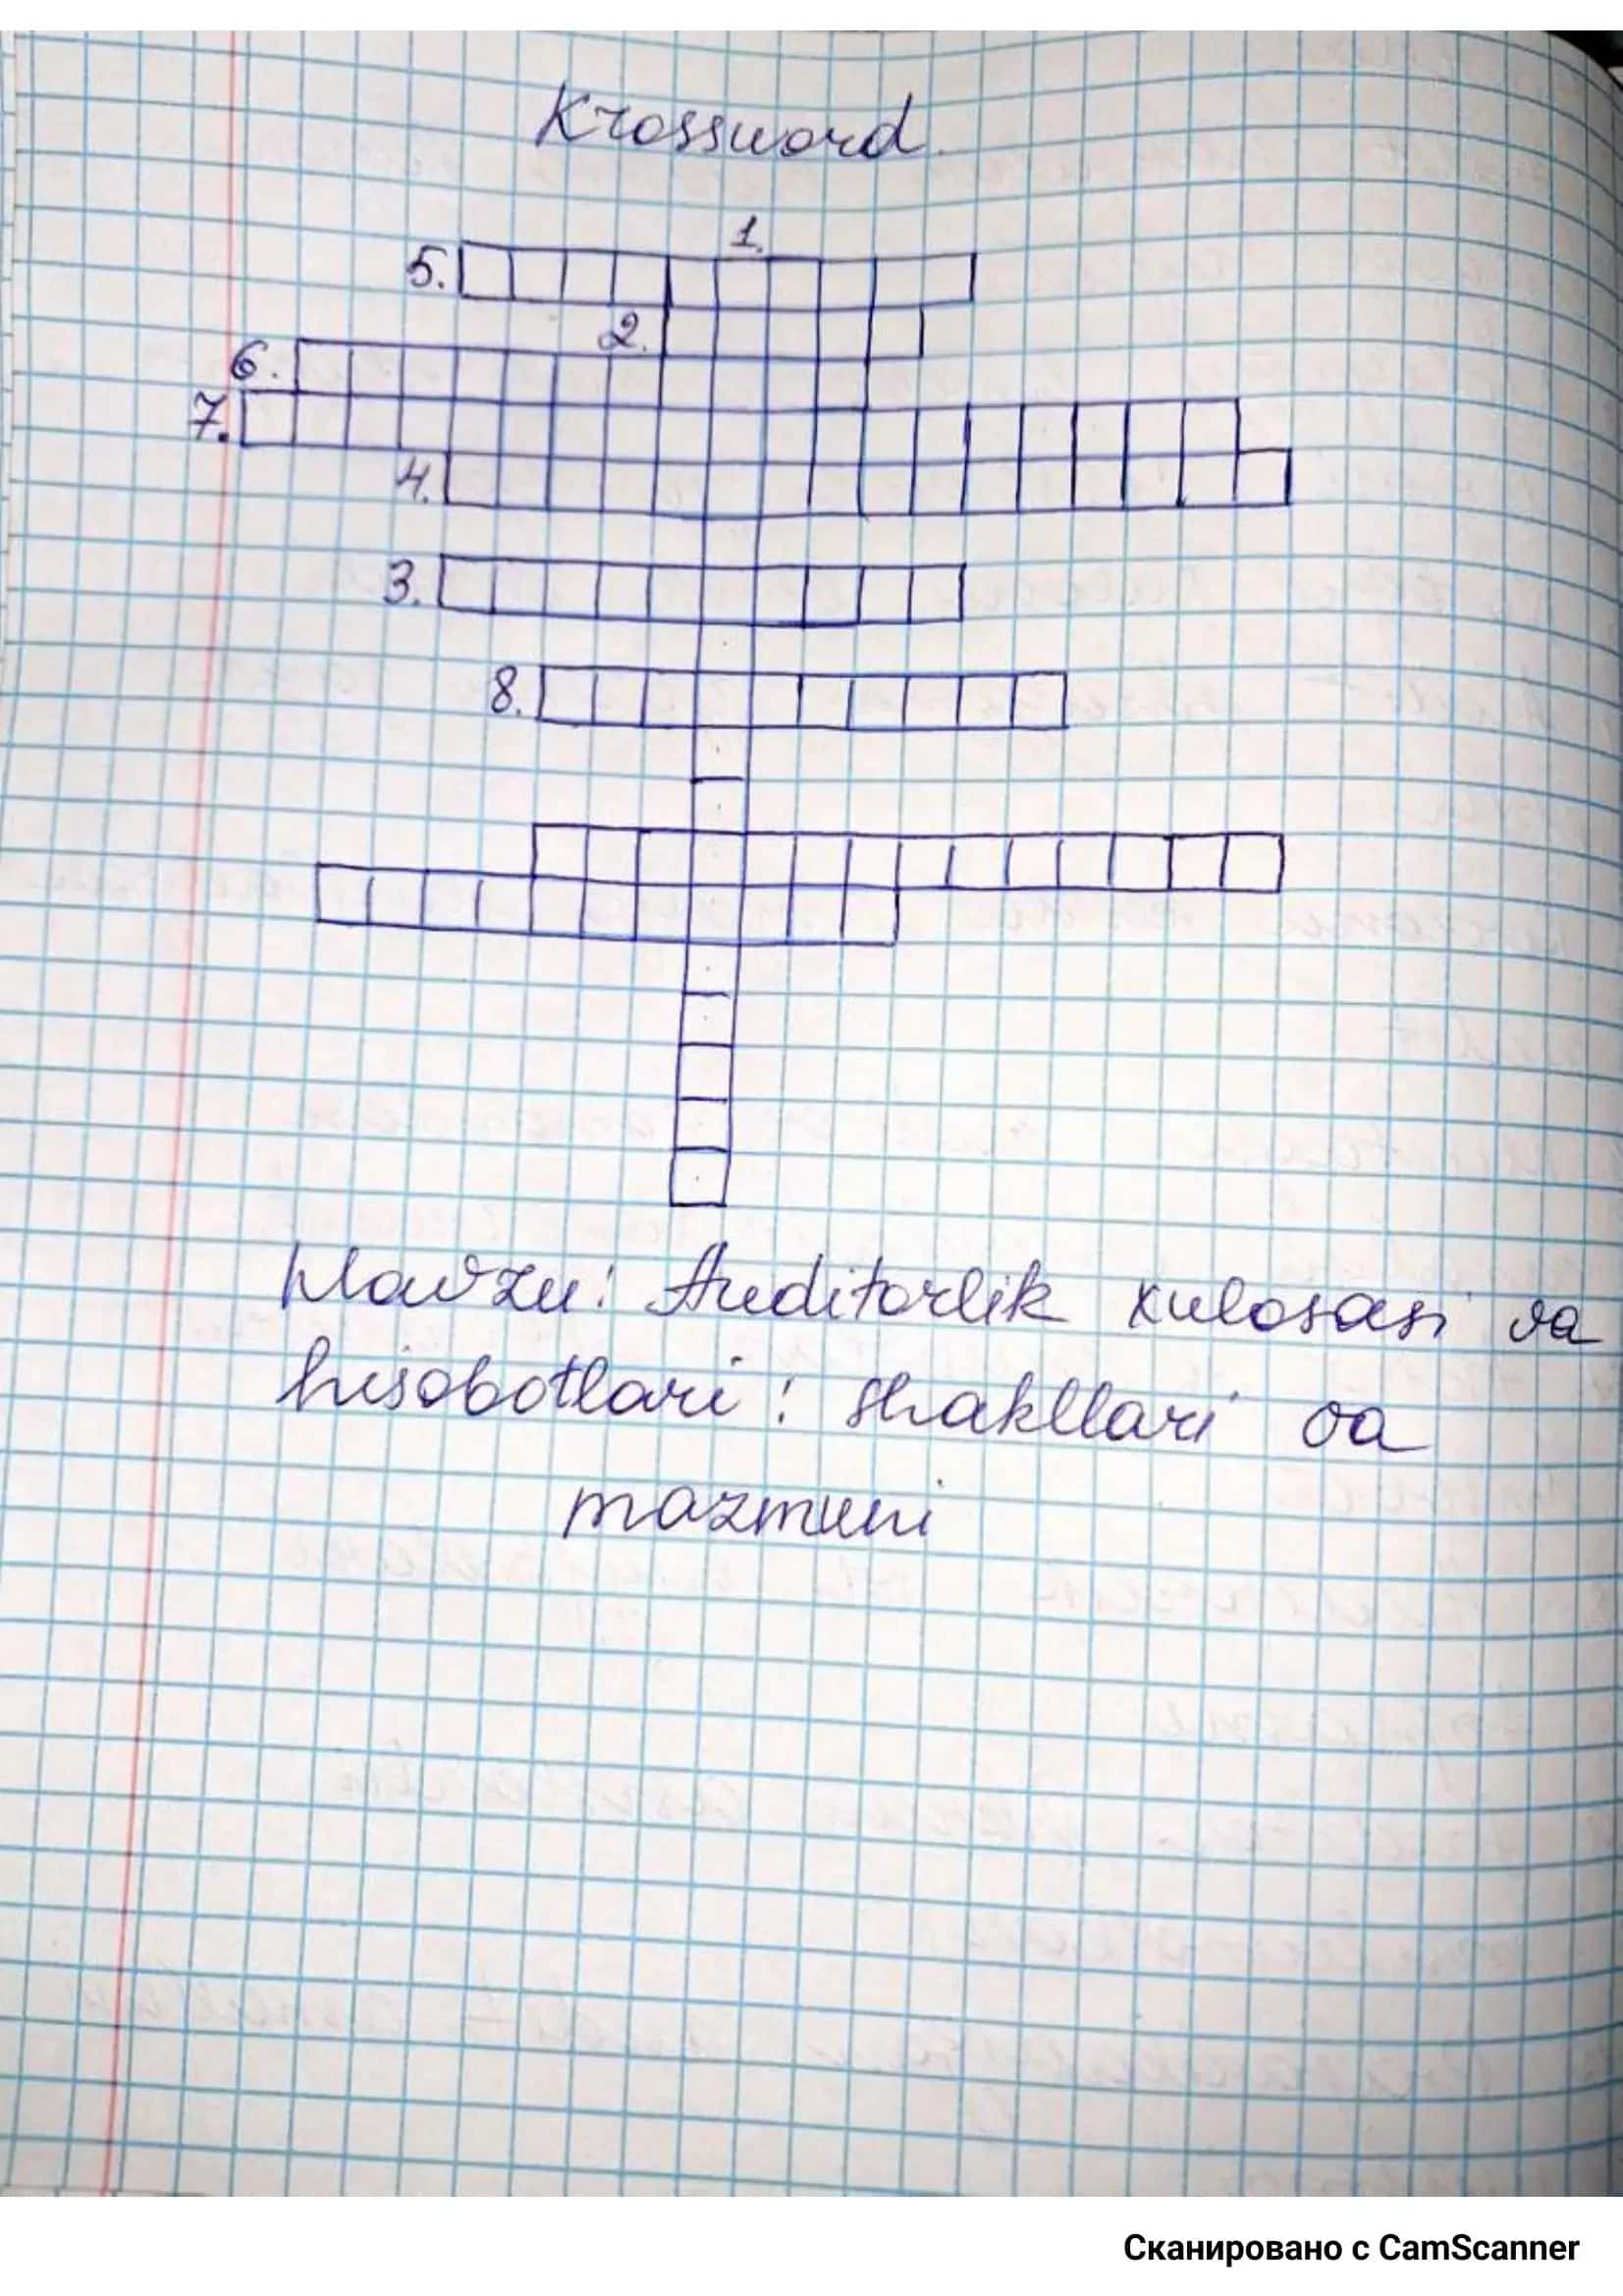 Krossword.
1.
5.
2.
6.
7.
4.
3.
8.
Mavzu: Auditorlik xulosasi va
hisobotlari: shakllari va
mazmuni
Сканировано с CamScanner